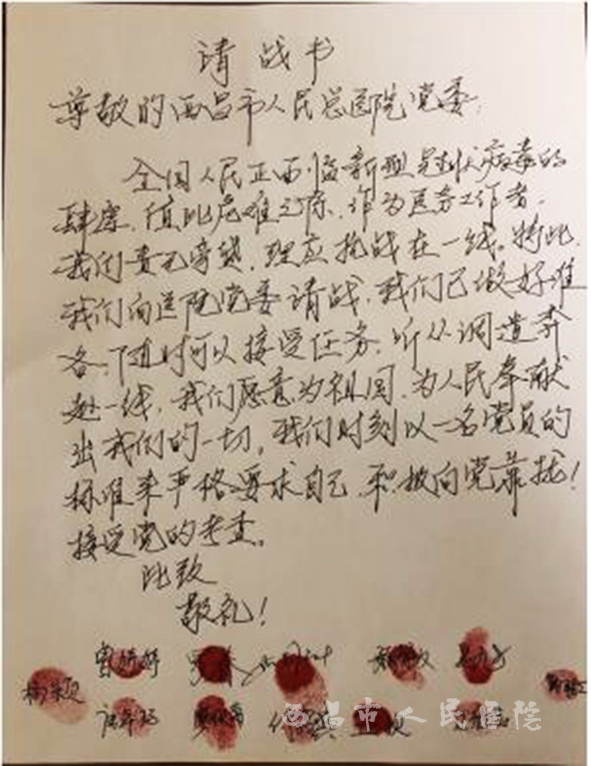 请战书
尊敬的西昌市人民总医院党委:
全国人民正面临新型冠状病毒的
肆虐,值此危难之际,作为医务工作者,
我们责无旁贷,理应抗战在一线。特此,
我们向医院党委请战,我们已做好准
备,随时可以接受任务,听从调遣奔
赴一线,我们愿意为祖国,为人民奉献
出我们的一切,我们时刻以一名党员的
标准来严格要求自己,积极向党靠拢!
接受党的考查。
此致
敬礼!
西昌市人民医院